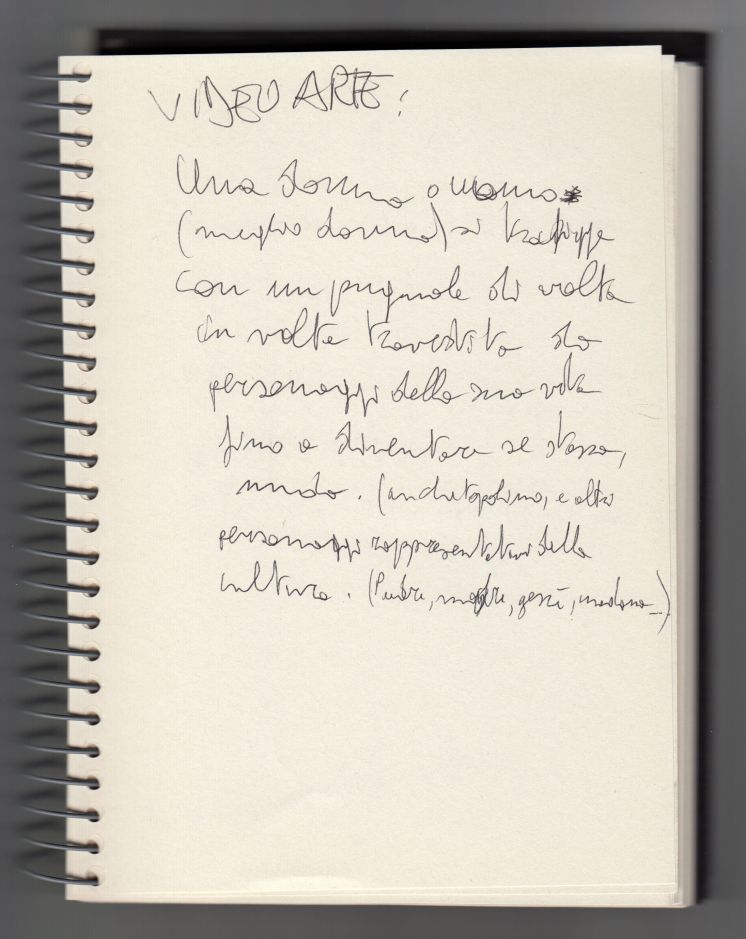 VIDEO ARTE:
Una donna o uomo
(meglio donna) si trafigge
con un pugnale di volta
in volta travestita da
personaggi della sua vita
fino a diventare se stessa,
nuda. (anche topolino, e altri
personaggi rappresentativi della
cultura. (Padre, madre, gesù, madona...)